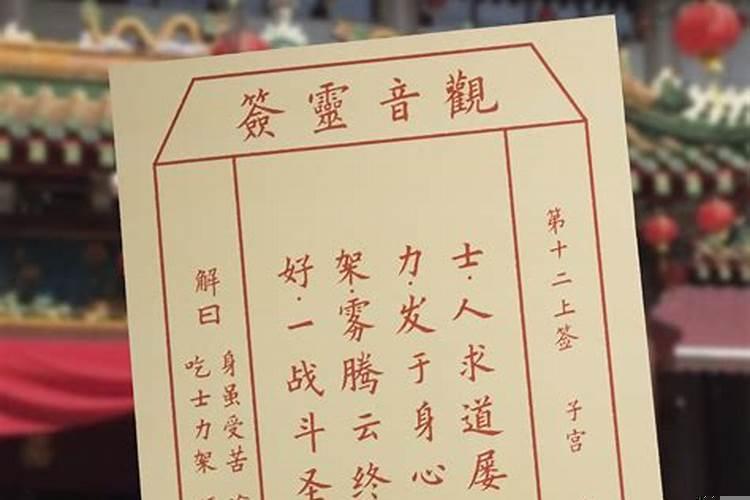 觀音靈簽
第十二上签 子宫
士·人求道屡
力·发于身心
架·雾腾云终
好·一战斗圣
解曰
身虽受苦
吃士力架